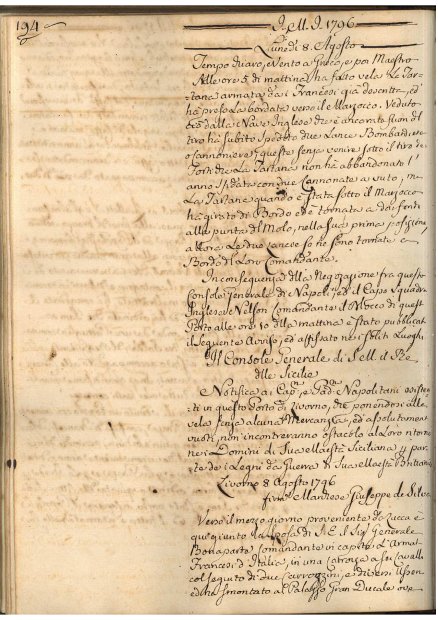 194
I.M.I. 1796
Lunedì 8. Agosto
Tempo vario, e Vento a Greco, e poi Maestro
Alle ore 5 di mattina ha fatto vela la Tar-
tana armata da i Francesi già descritta, ed
hà preso la bordata verso il Marzocco. Veduto
ciò dalla Nave Inglese che è ancorata fuori del
tiro hà subito spedito due Lance Bombardiere
o Cannoniere, e queste senza venire sotto il tiro de
Forti che la Tartana non hà abbandonato l'
anno con due Cannonate a vuto, 
La Tartana quando è stata sotto il Marzocco
hà girato di Bordo ed è tornata a dar fondo
alla punta del Molo, nella sua prima posizione,
allora le due Lance se ne sono tornate a
Bordo di loro Comandante.
In conseguenza della Negoziazione fra questo
Console Generale di Napoli, ed il Capo Squadra
Inglese Nelson Comandante il Blocco di questo
Porto alle ore 10 della mattina è stato pubblicat
il seguente Avviso, ed affissato nei soliti Luoghi
Il Console Generale di S. M. il Re
delle Sicilie
Notifica a i Cap.ni, e Pad.ni Napolitani esisten-
ti in questo Porto di Livorno, che ponendosi alla
vela senza alcuna Mercanzia, ed assolutament
vuoti, non incontreranno ostacolo al loro ritorno
nei Domini di Sua Maestà Siciliana per par-
te de i Legni da Guerra di Sua Maestà Brittanic
Livorno 8 Agosto 1796
firm.o Marchese Giuseppe de Silva
Verso il mezzo giorno proveniente da Lucca è
quì giunta la Sposa di S.E. il Sig.r Generale
Bonaparte Comandante in capite l'Armat
Francese d'Italia, in una Carrozza a sei Cavalli
col seguito di due e diversi Usseri
ed hà smontato al Palazzo Gran Ducale ove